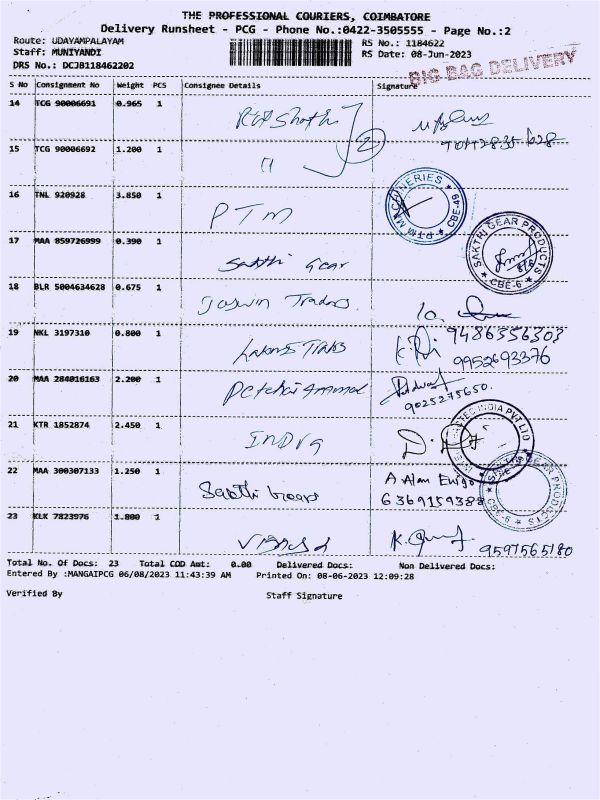 THE PROFESSIONAL COURIERS, COIMBATORE
Delivery Runsheet - PCG - Phone No.:0422-3505555 - Page No.:2
Route: UDAYAMPALAYAM RS No.: 1184622
Staff: MUNIYANDI RS Date: 08-Jun-2023
DRS No.: DCJB118462202
BIG BAG DELIVERY
S No Consignment No Weight PCS Consignee Details Signature
14 TCG 90006691 0.965 1
15 TCG 90006692 1.200 1 "
16 TNL 920928 3.850 1 PTM
P.T.M MACHINERIES ★ CBE-49 ★
17 MAA 859726999 0.390 1 Sakthi Gear
★ SAKTHI GEAR PRODUCTS ★ CBE-6
18 BLR 5004634628 0.675 1 Traders
19 NKL 3197310 0.800 1 9486556303
9952693376
20 MAA 284016163 2.200 1 Petchiammal
9025275650.
21 KTR 1852874 2.450 1 INDIA PVT LTD
22 MAA 300307133 1.250 1 Sakthi Gears A Alan
6369159388
GEAR PRODUCTS ★ CBE-6 ★
23 KLK 7823976 1.800 1 9597565180
Total No. Of Docs: 23 Total COD Amt: 0.00 Delivered Docs: Non Delivered Docs:
Entered By :MANGAIPCG 06/08/2023 11:43:39 AM Printed On: 08-06-2023 12:09:28
Verified By Staff Signature